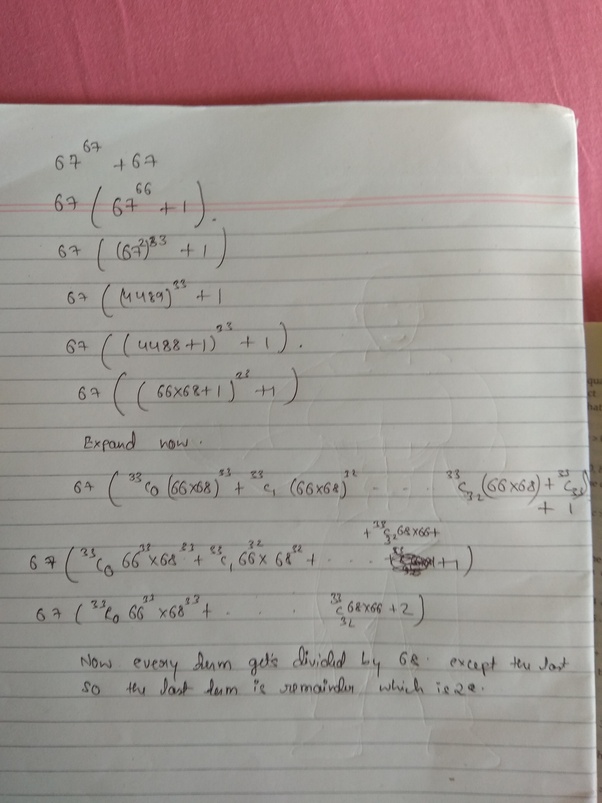 67^67 + 67
67 ( 67^66 + 1 ).
67 ( (67^2)^33 + 1 )
67 ( (4489)^33 + 1
67 ( ( 4488 + 1 )^33 + 1 ).
67 ( ( 66×68 + 1 )^33 + 1 )
Expand now.
67 ( ^33C_0 (66×68)^33 + ^33C_1 (66×68)^32 - - - ^33C_32 (66×68) + ^33C_33 )
+ 1
+ ^33C_32 68×66 +
67 ( ^33C_0 66^33 × 68^33 + ^33C_1 66^32 × 68^32 + . . . + 1 )
67 ( ^33C_0 66^33 × 68^33 + . . . ^33C_32 68×66 + 2 )
Now every term gets divided by 68. except the last
so the last term is remainder which is 2